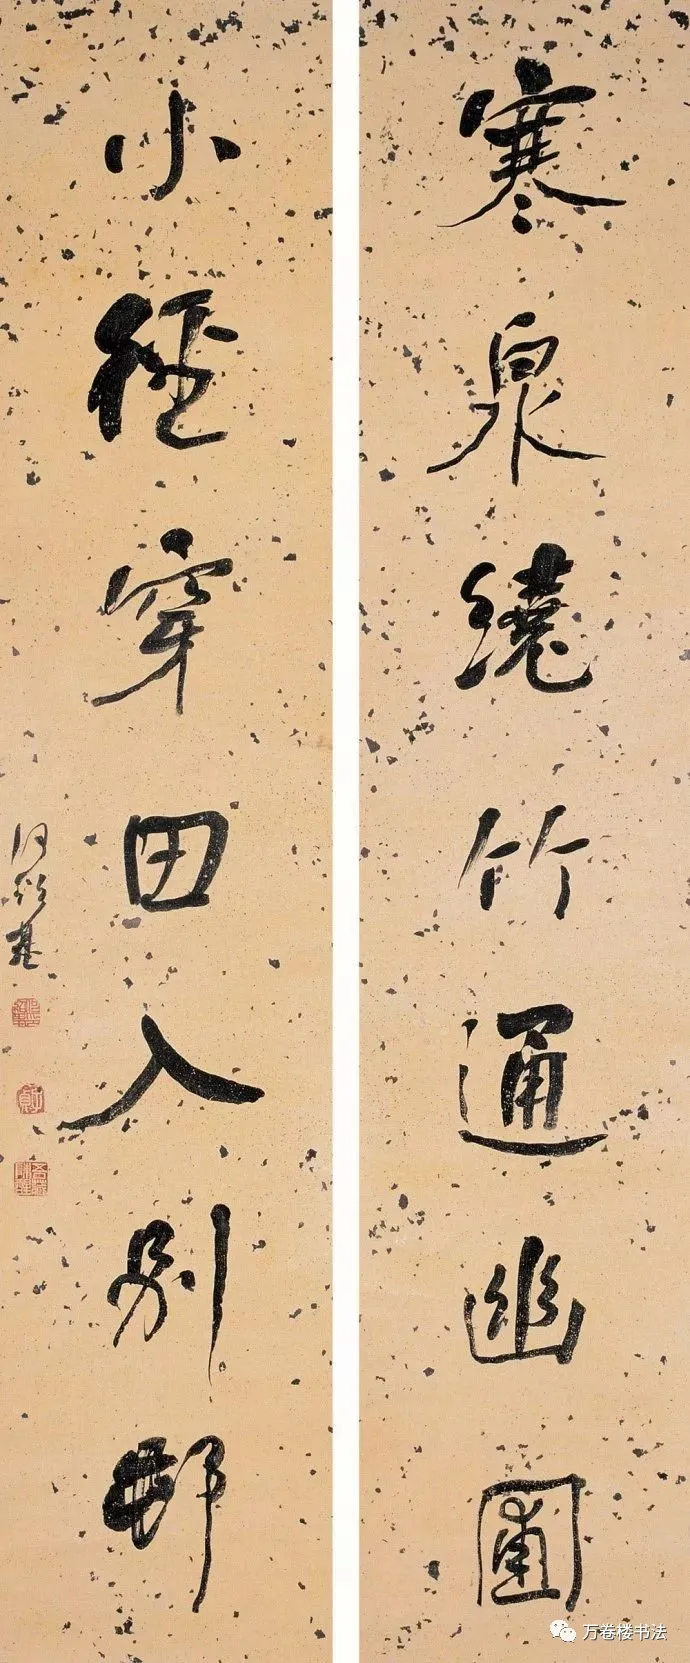 寒泉繞竹通幽圃
小徑穿田入別邨
何紹基
万卷楼书法